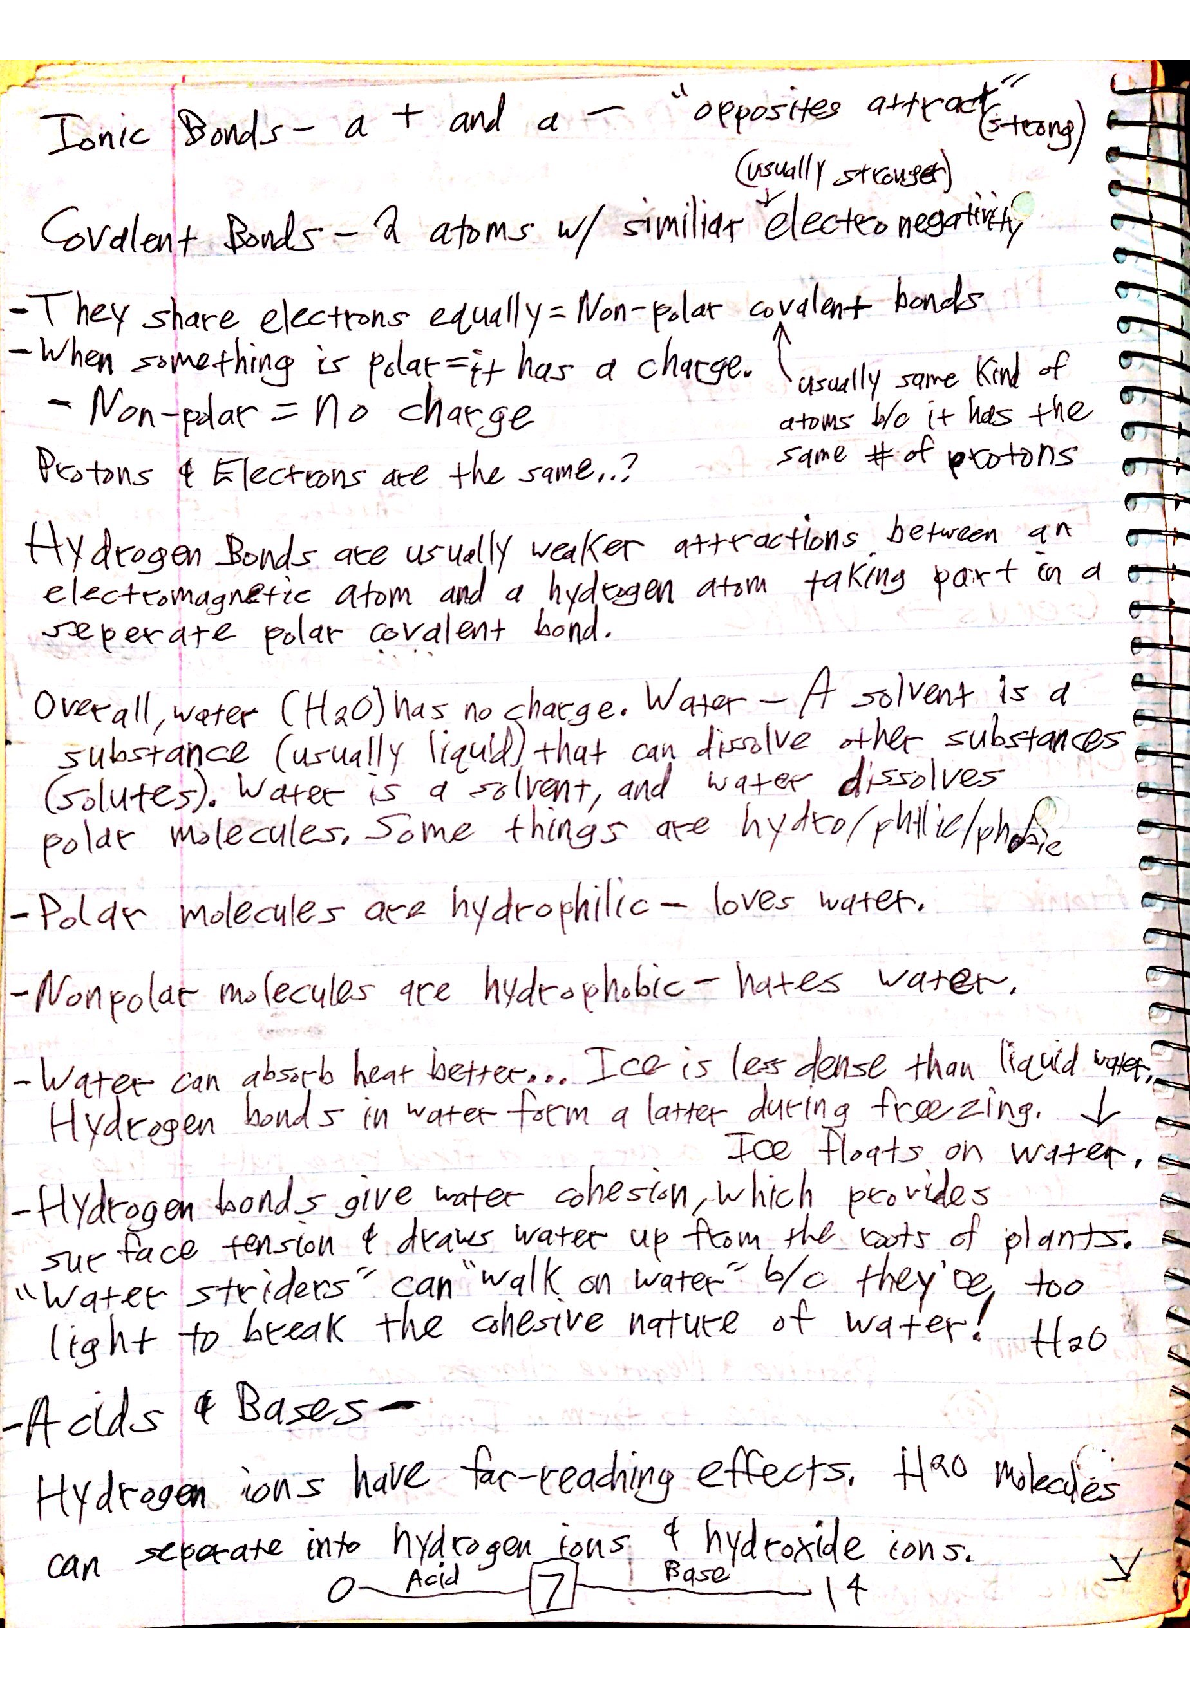 Ionic Bonds - a + and a - "opposites attract" (strong)
(usually stronger)
Covalent Bonds - 2 atoms w/ similiar electronegativity
- They share electrons equally = Non-polar covalent bonds
- When something is polar = it has a charge.
usually same kind of
- Non-polar = no charge
atoms b/c it has the
same # of protons
Protons & Electrons are the same..?
Hydrogen Bonds are usually weaker attractions between an
electromagnetic atom and a hydrogen atom taking part in a
seperate polar covalent bond.
Overall, water (H2O) has no charge. Water - A solvent is a
substance (usually liquid) that can dissolve other substances
(solutes). Water is a solvent, and water dissolves
polar molecules. Some things are hydro/philic/phobic
- Polar molecules are hydrophilic - loves water.
- Nonpolar molecules are hydrophobic - hates water.
- Water can absorb heat better... Ice is less dense than liquid water.
Hydrogen bonds in water form a latter during freezing. ↓
Ice floats on water.
- Hydrogen bonds give water cohesion, which provides
surface tension & draws water up from the roots of plants.
"Water striders" can "walk on water" b/c they're too
light to break the cohesive nature of water! H2O
- Acids & Bases -
Hydrogen ions have far-reaching effects. H2O molecules
can separate into hydrogen ions & hydroxide ions.
0 Acid 7 Base 14